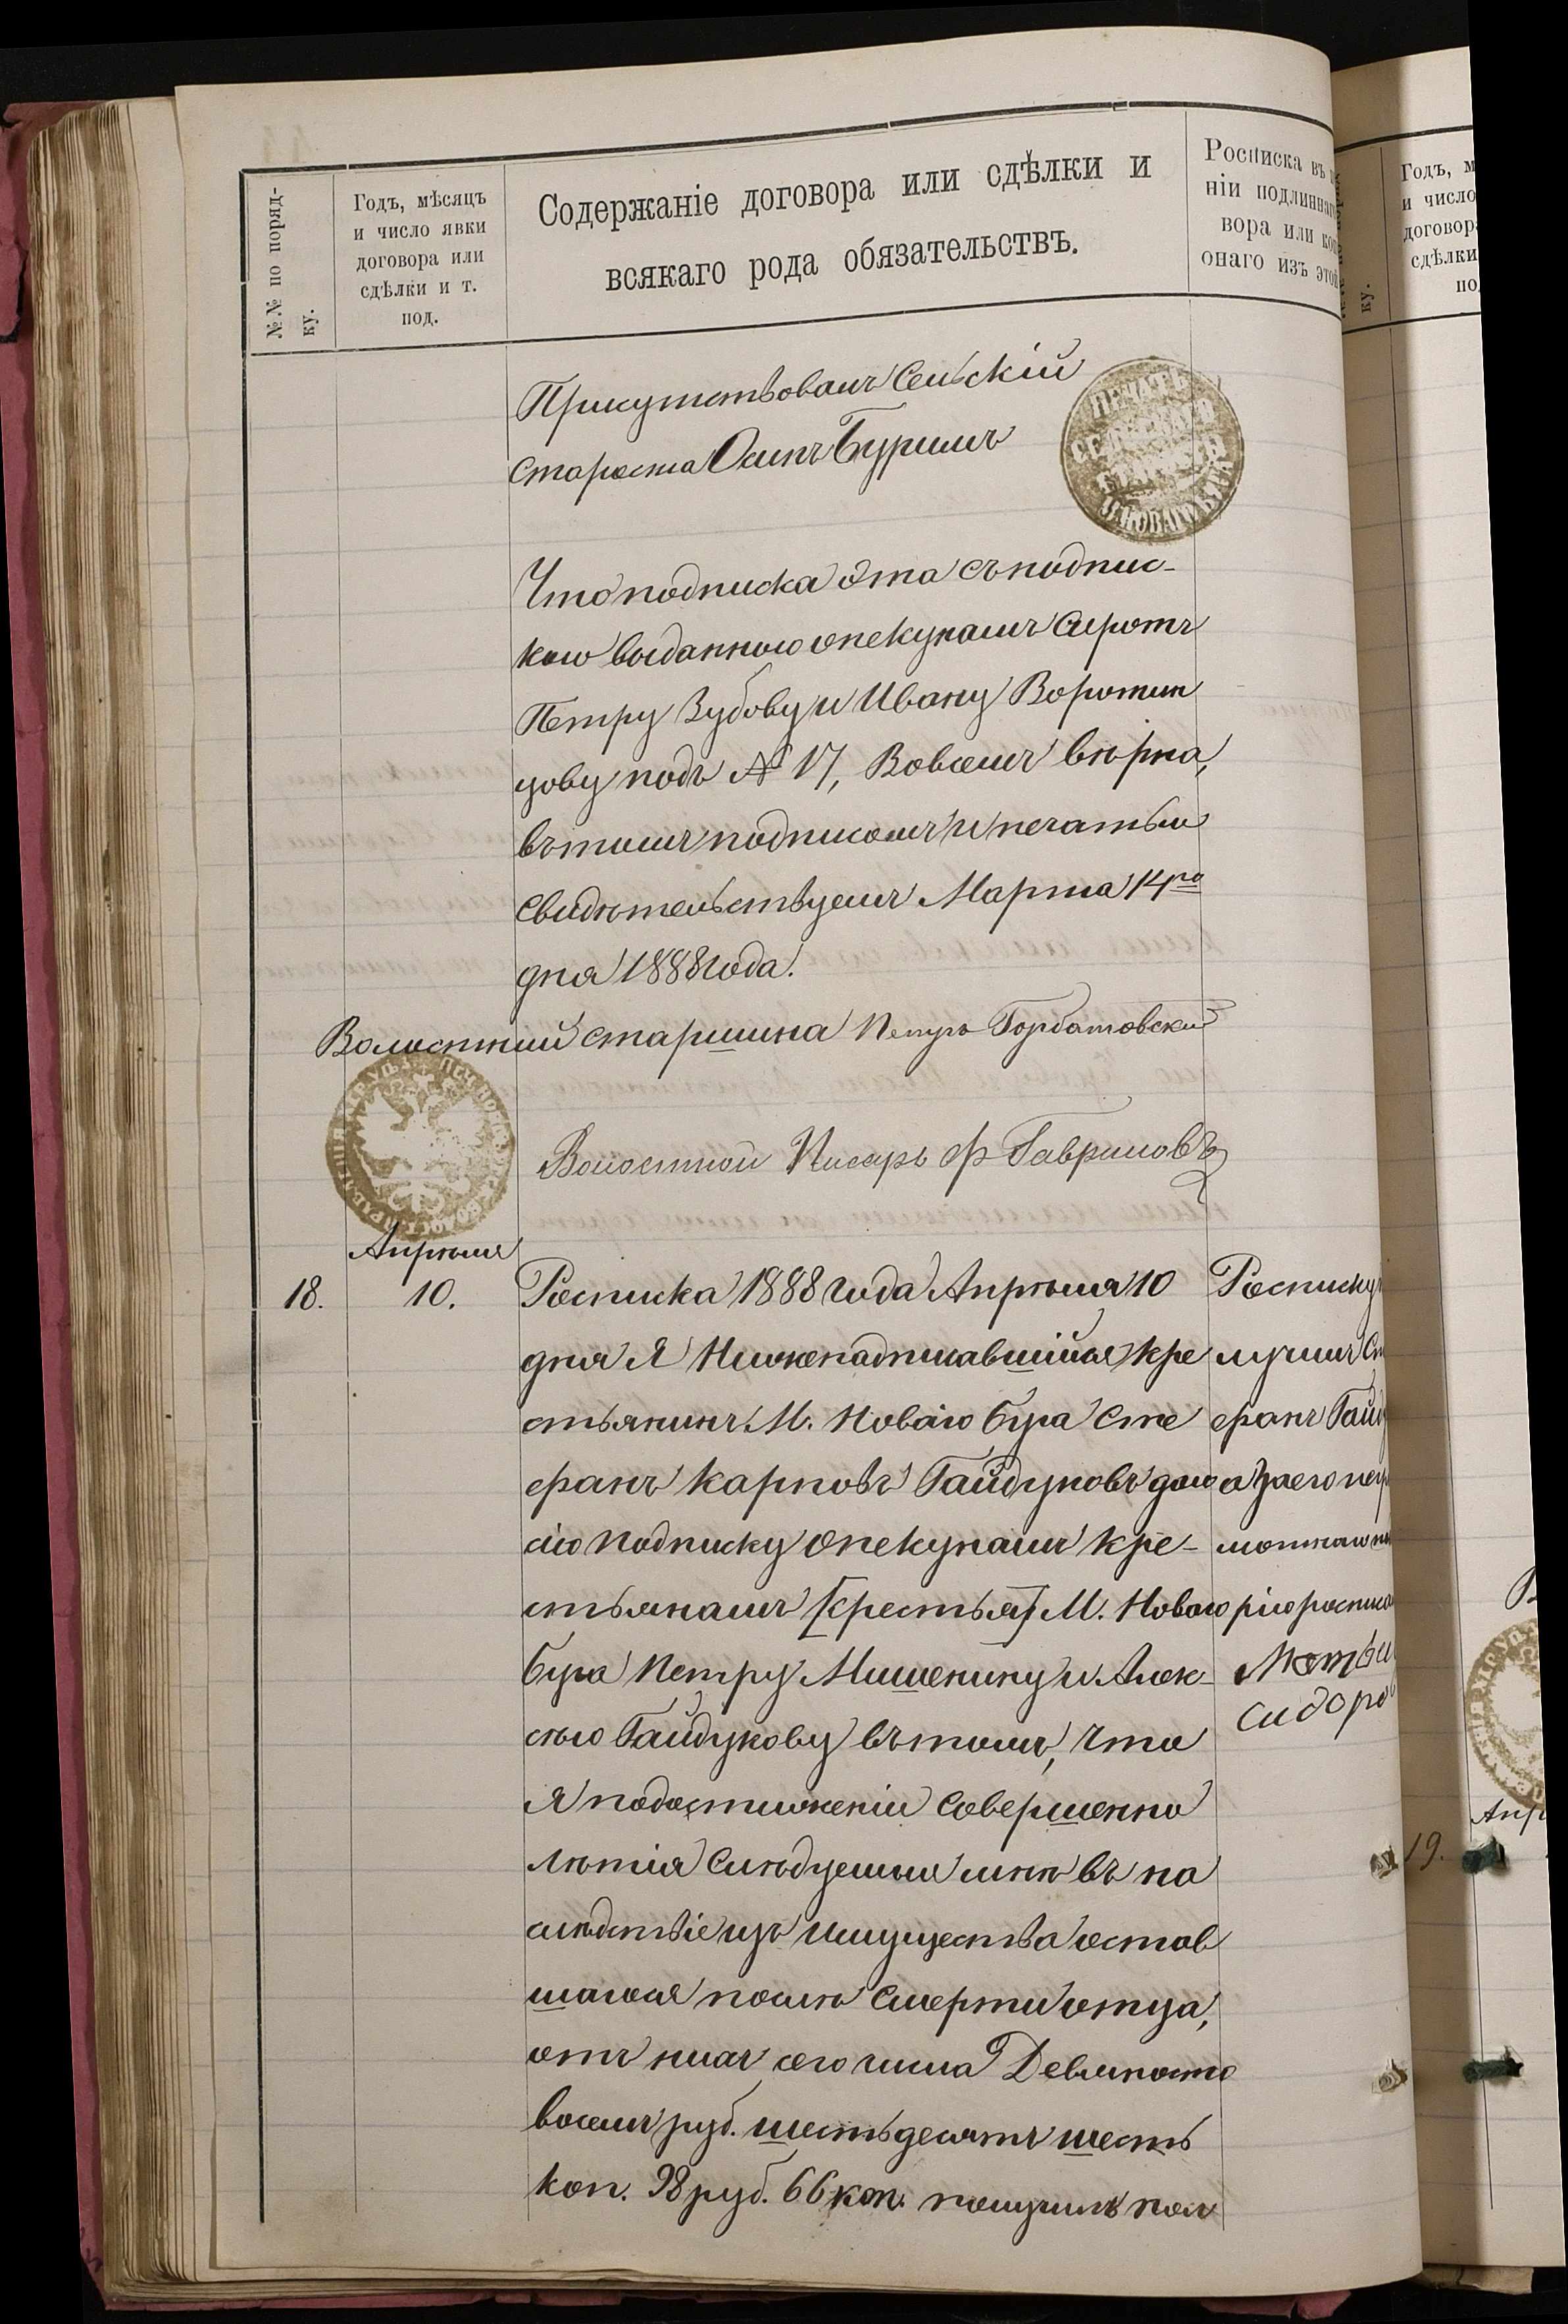 №№ по поряд-
ку.
Годъ, мѣсяцъ
и число явки
договора или
сдѣлки и т.
под.
Содержаніе договора или сдѣлки и
всякаго рода обязательствъ.
Росписка въ
ніи подлиннаг
вора или коп
онаго изъ этой
Присутствовалъ Сельскій
староста Осипъ Буримъ
ПЕЧАТЬ
СЕЛЬСКАГО
СТАРОСТЫ
М. НОВАГО БУГА
Что подписка эта съ подпис-
кою выданною опекунамъ сиротъ
Петру Зубову и Ивану Воротин
цову подъ № 17, Вовсемъ вѣрна,
въ томъ подписомъ и печатью
свидѣтельствуемъ Марта 14го
дня 1888 года.
Волостный старшина Петръ Горбатовскій
Волостной Писарь Ф Гавриловъ
Апрѣля
18. 10.
Росписка 1888 года Апрѣля 10
дня Я Нижеподписавшійся кре
стьянинъ М. Новаго Буга Сте
фанъ Карповъ Гайдуковъ даю
сію подписку опекунамъ кре-
стьянамъ [крестья] М. Новаго
Буга Петру Мишенину и Алек-
сѣю Гайдукову въ томъ, что
я подостиженіи совершенно
лѣтія слѣдуемыя мнѣ въ на
слѣдствіе изъ имущества остав
шагося послѣ смерти отца,
отъ нихъ сего числа Девяносто
восемь руб. шестьдесятъ шесть
коп. 98 руб. 66 коп. получилъ пол
Росписку
лучилъ Ст
фанъ Гайд
а за его негр
мотнаго
рію росписа
Матвѣй
Сидоро
Годъ, м
и число
договор
сдѣлки
по
ку.
Апр
19.